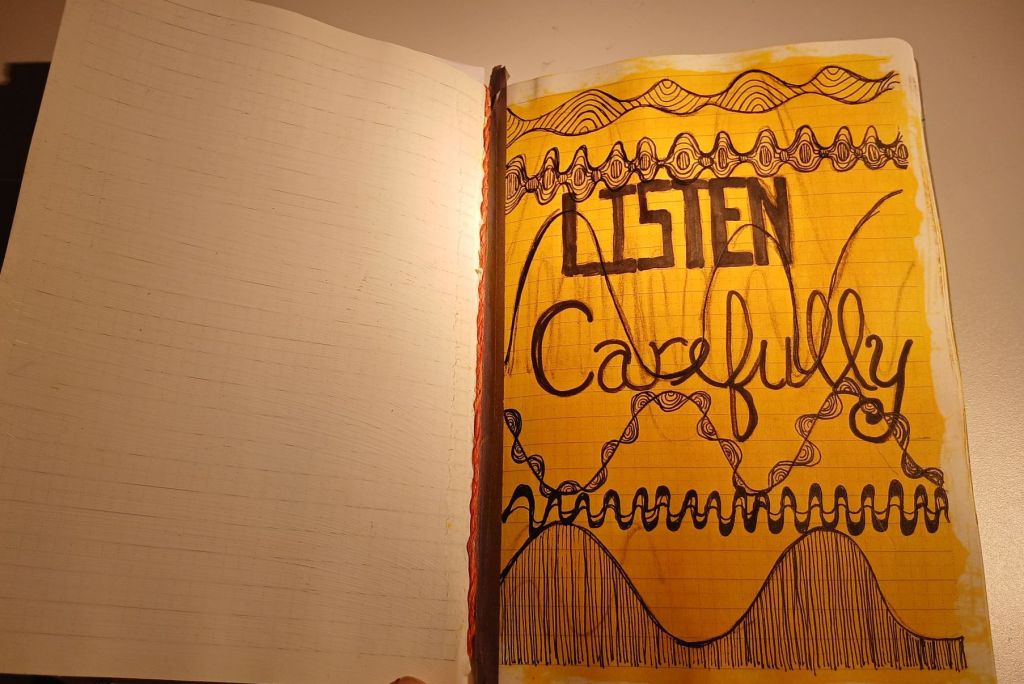 LISTEN
Carefully